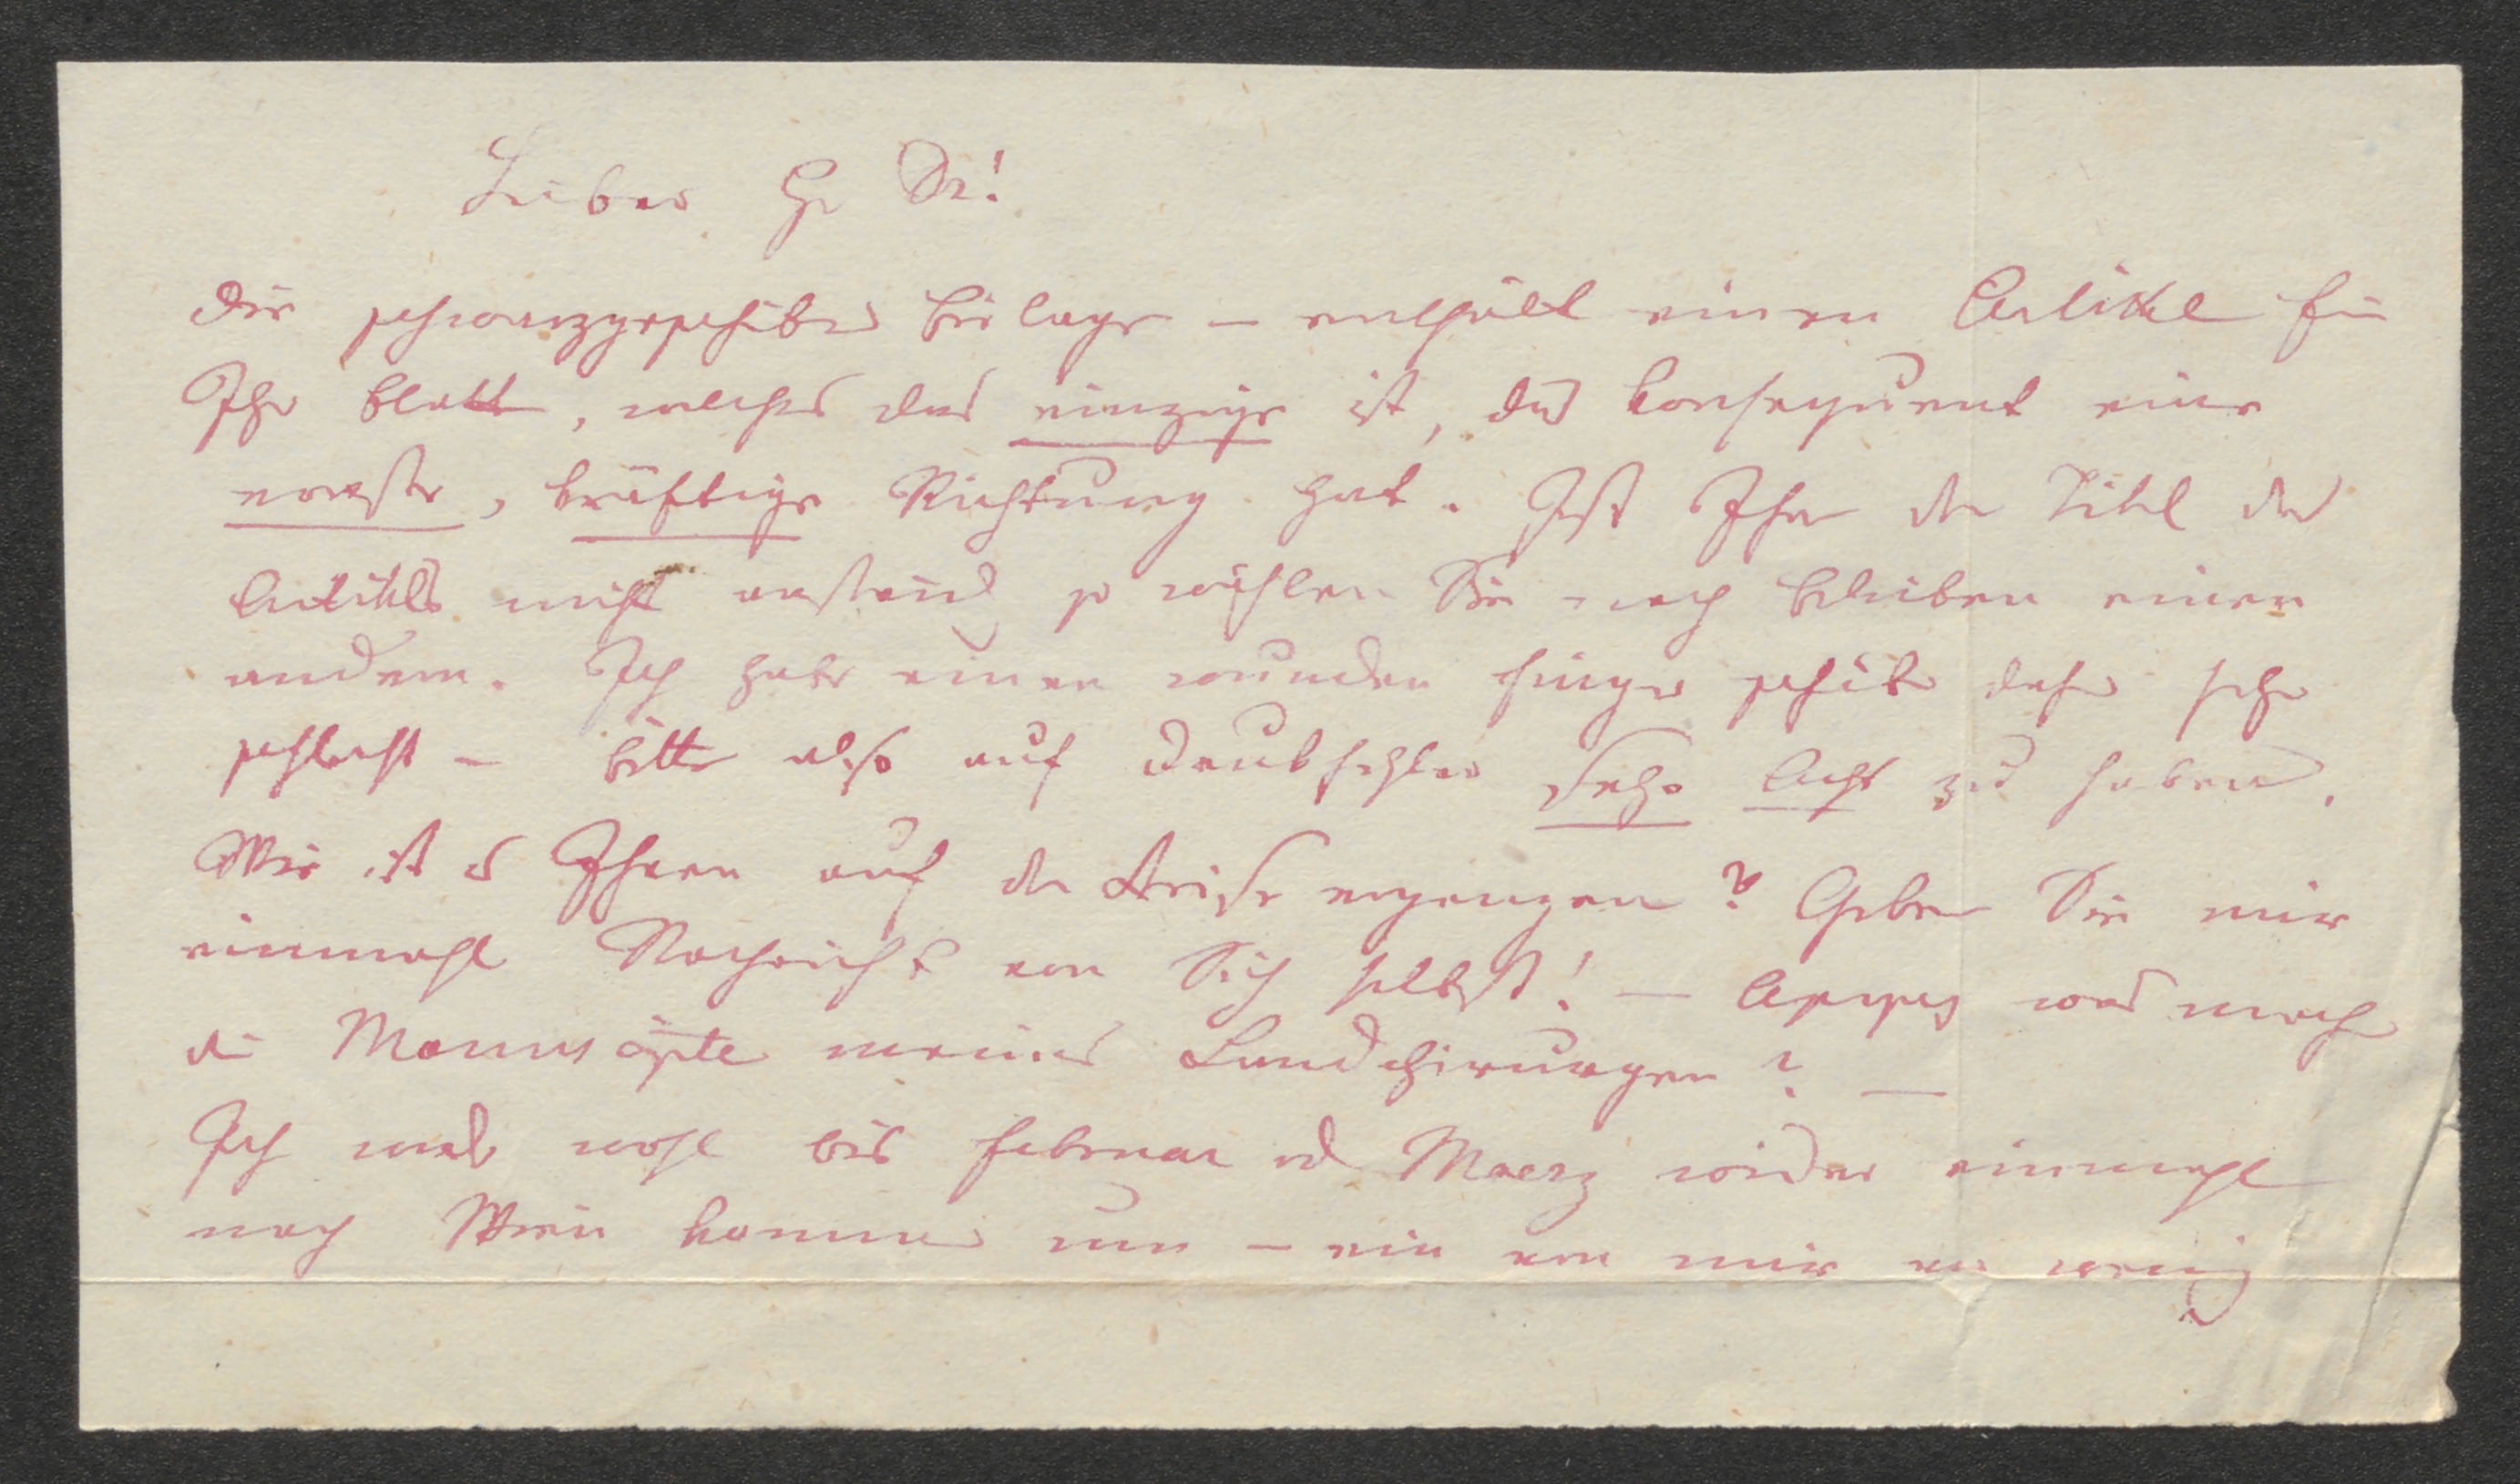 Lieber Hr Dr!
Die schwarzgeschriebne Beilage – enthält einen Artikel für
Ihr Blatt, welches das einzige ist, das konsequent eine
ernste, kräftige Richtung hat. Ist Ihn der Titel des
Artikels nicht anständ so wählen Sie nach Belieben einen
andern. Ich habe einen wunden Finger schreibe daher sehr
schlecht – bitte also auf Druckfehler sehr Acht zu haben.
Wie ist es Ihnen auf der Reise ergangen? Geben Sie mir
einmahl Nachricht von Sich selbst! — Apropos was mache
die Manuscripte meines Landchirurgen? —
Ich werde wohl bis Februar od Maerz wieder einmahl
nach Wien kommen um – ein von mir wenig